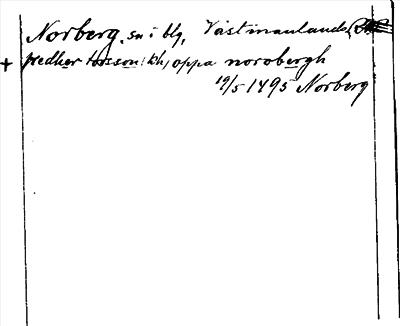 Norberg, sn i blg, Västmanlands
+ predker torsson (kh) oppa norobergh
19/5 1495 Norberg